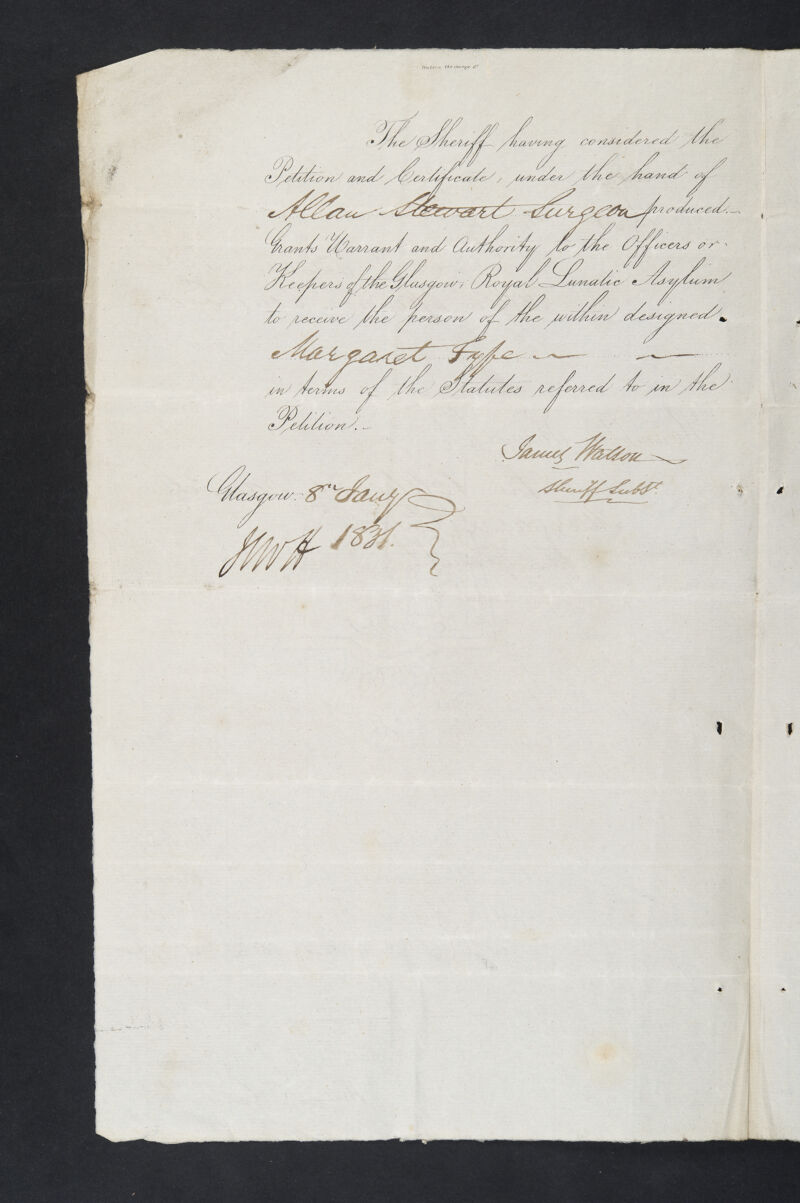 The Sheriff having considered the
Petition and Certificate, under the hand of
Allan Stewart Surgeon produced.
Grants Warrant and Authority to the Officers or
Keepers of the Glasgow, Royal Lunatic Asylum
to receive the person of the within designed
Margaret Fyfe
in terms of the Statutes referred to in the
Petition.
James Watson
Sheriff Subst.
Glasgow 8th Jany
1831.